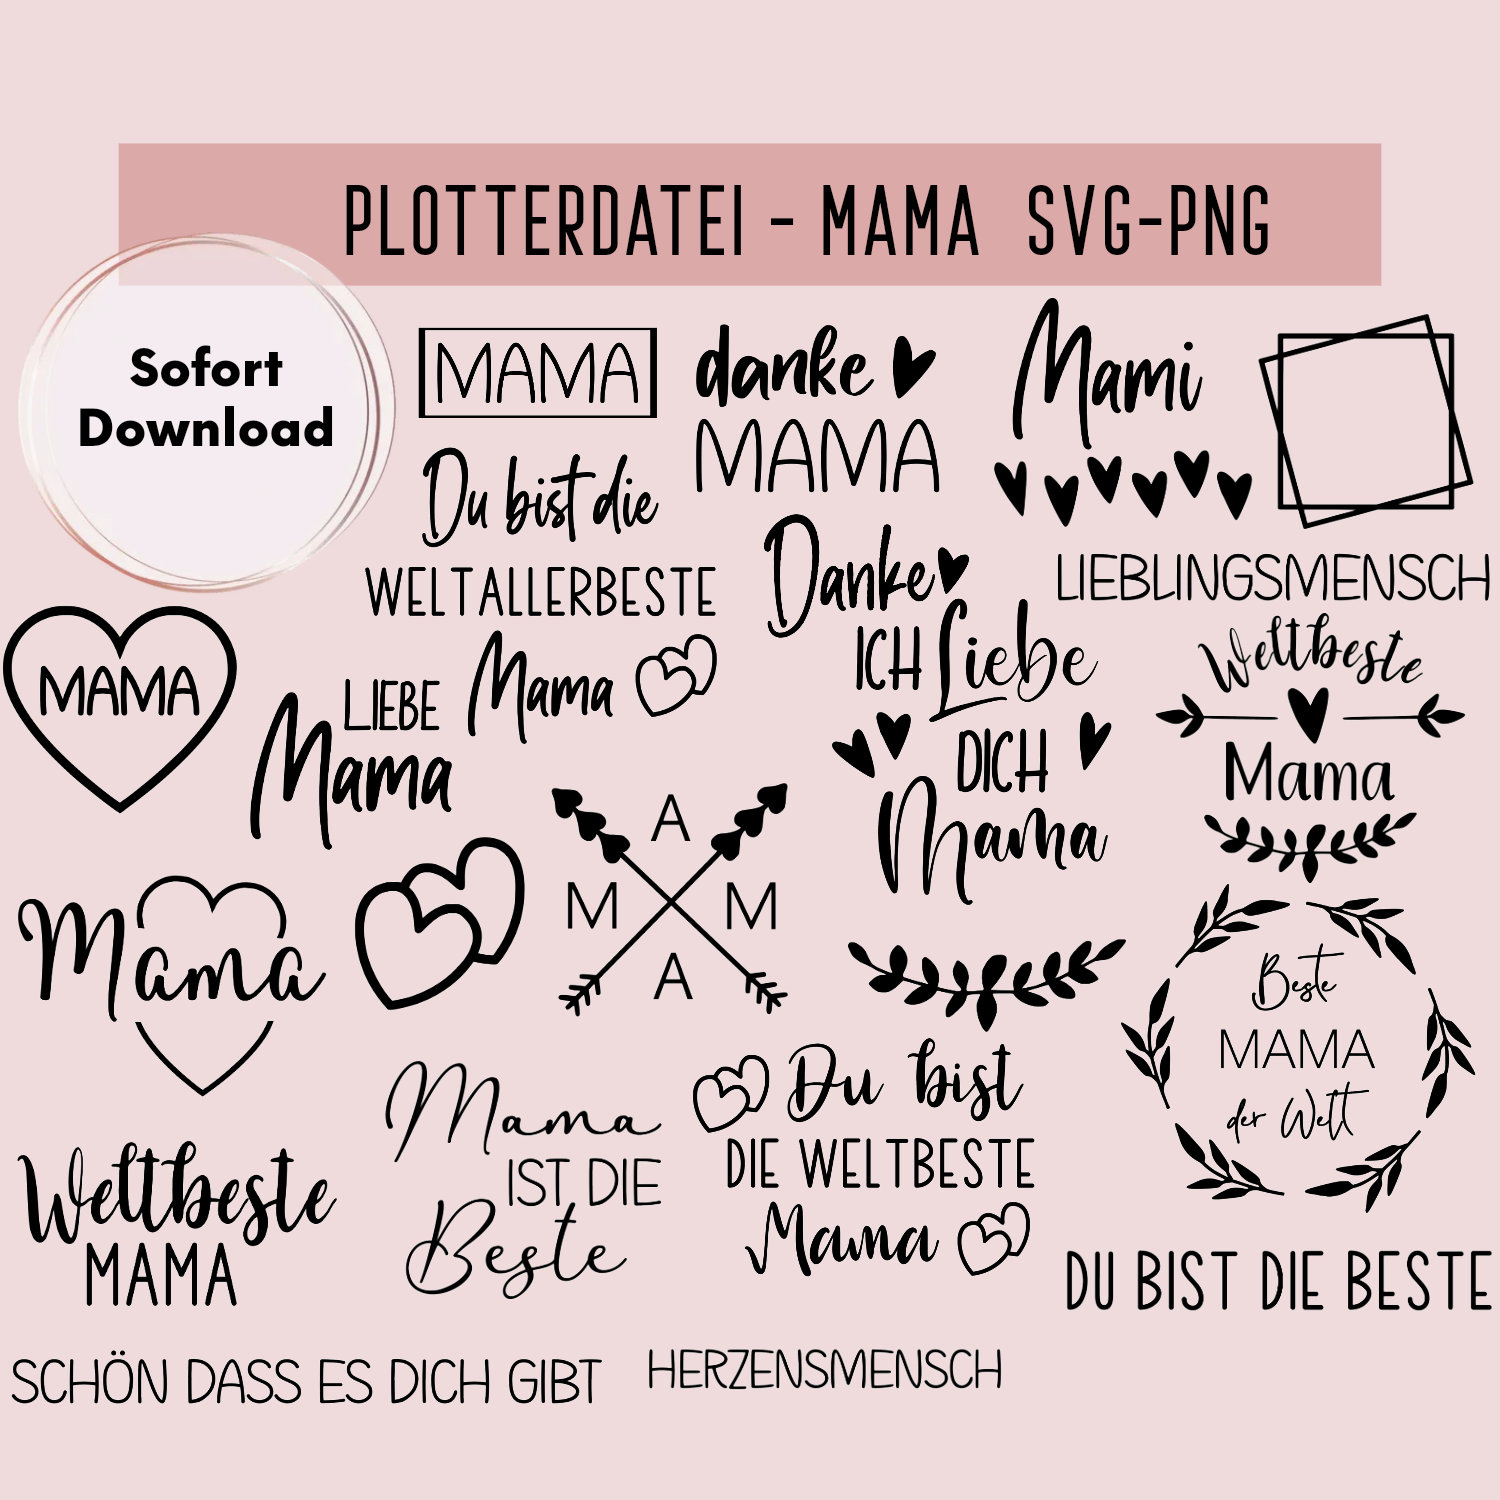 PLOTTERDATEI - MAMA SVG-PNG
Sofort
Download
MAMA
danke
MAMA
Mami
Du bist die
WELTALLERBESTE
Mama
Danke
ICH Liebe
DICH
Mama
LIEBLINGSMENSCH
Weltbeste
Mama
MAMA
LIEBE
Mama
A
M M
A
Mama
Beste
MAMA
der Welt
Weltbeste
MAMA
Mama
IST DIE
Beste
Du bist
DIE WELTBESTE
Mama
DU BIST DIE BESTE
SCHÖN DASS ES DICH GIBT
HERZENSMENSCH